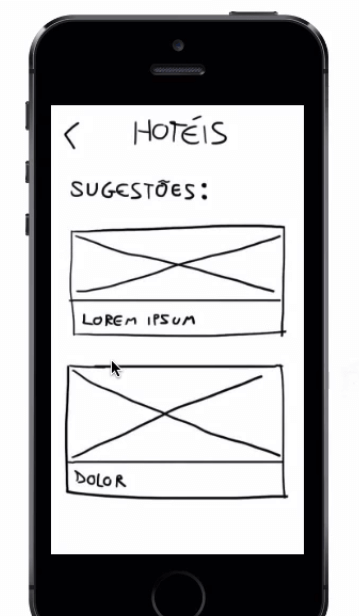 < HOTÉIS
SUGESTÕES:
LOREM IPSUM
DOLOR